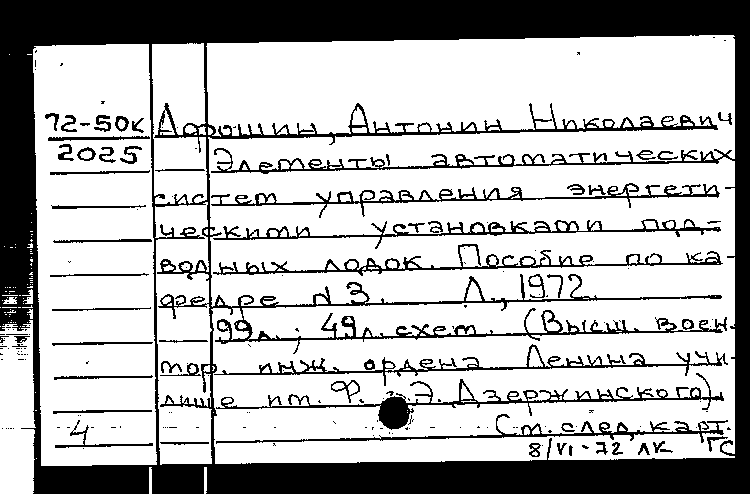 72-50К Дорошин, Антонин Николаевич
2025 Элементы автоматических
систем управления энергети-
ческими установками под-
водных лодок. Пособие по ка-
федре N 3. Л., 1972.
99л.; 49л. схем. (Высш. воен.-
мор. инж. ордена Ленина учи-
лище им. Ф. Э. Дзержинского).
4 См. след. карт.
8/VI-72 ЛК ГС